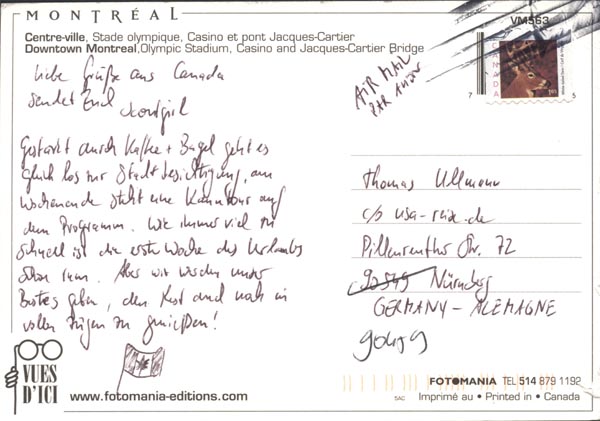 MONTRÉAL
Centre-ville, Stade olympique, Casino et pont Jacques-Cartier
Downtown Montreal, Olympic Stadium, Casino and Jacques-Cartier Bridge
VM563
CANADA
7 5
AIR MAIL
PAR AVION
Liebe Grüße aus Canada
sendet Euch
Gestärkt durch Kaffee + Bagel geht es
gleich los zur Stadtbesichtigung, am
Wochenende steht eine Kanutour auf
dem Programm. Wie immer viel zu
schnell ist die erste Woche des Urlaubs
schon rum. Aber wir werden unser
Bestes geben, den Rest auch noch in
vollen Zügen zu genießen!
Thomas Ullmann
c/o usa-reise.de
Pillenreuther Str. 72
Nürnberg
GERMANY - ALEMAGNE
90459
VUES
D'ICI
www.fotomania-editions.com
FOTOMANIA TEL 514 879 1192
5AC
Imprimé au • Printed in • Canada